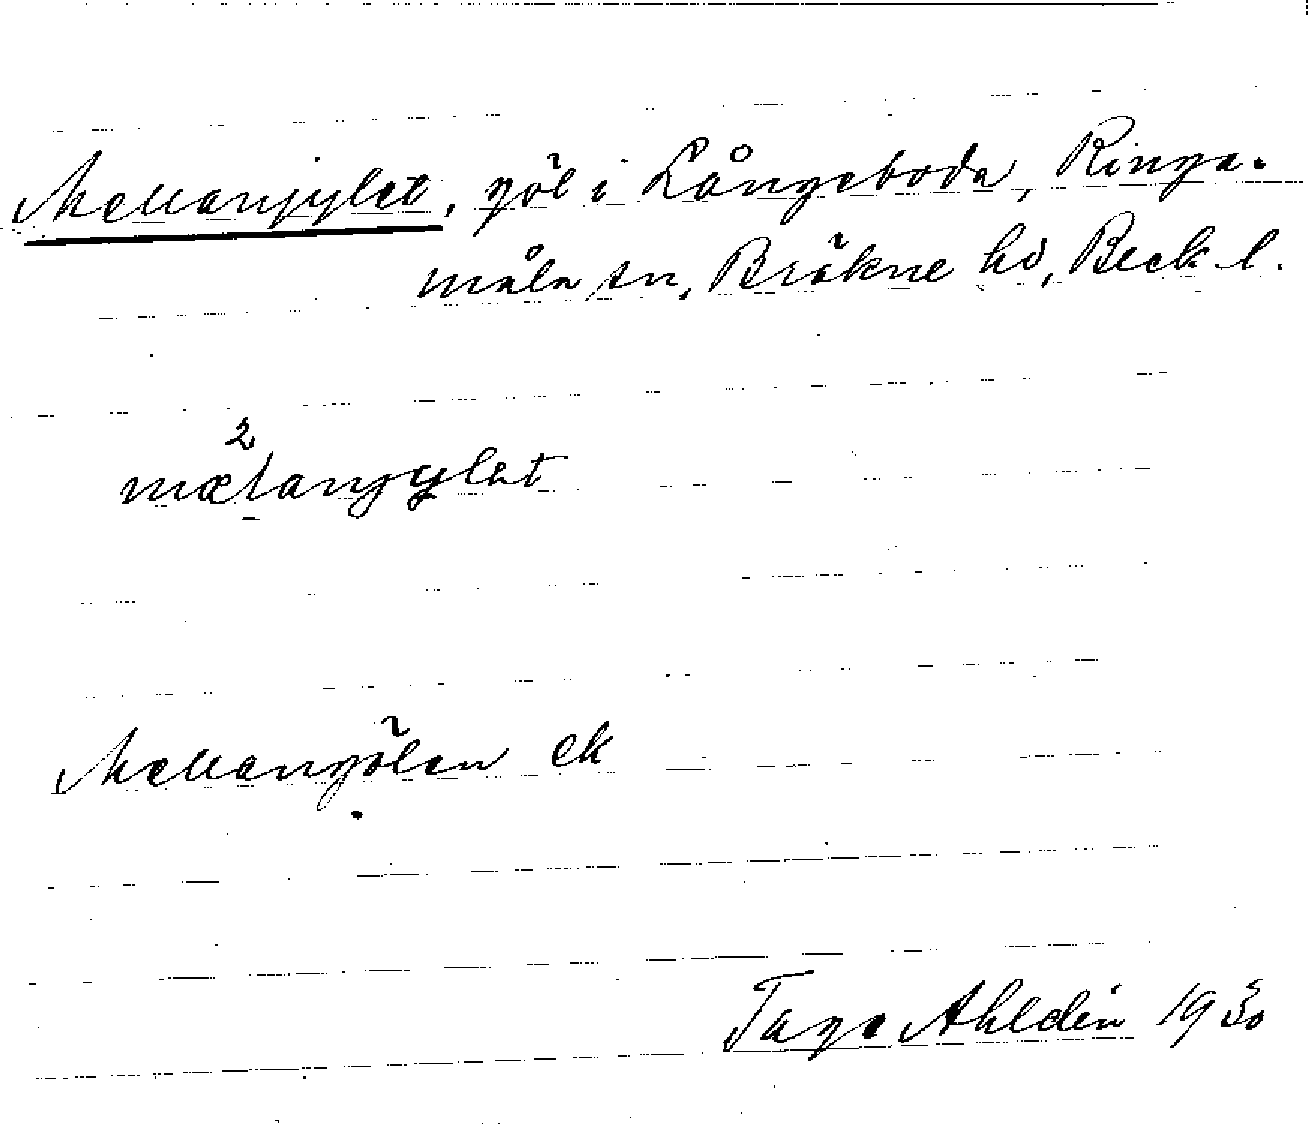 Mellanjylet, göl i Långeboda, Ringa-
måla sn, Bräkne hd, Bleck. l.
2
mælanjylət
Mellangölen ek
Tage Ahldén 1930